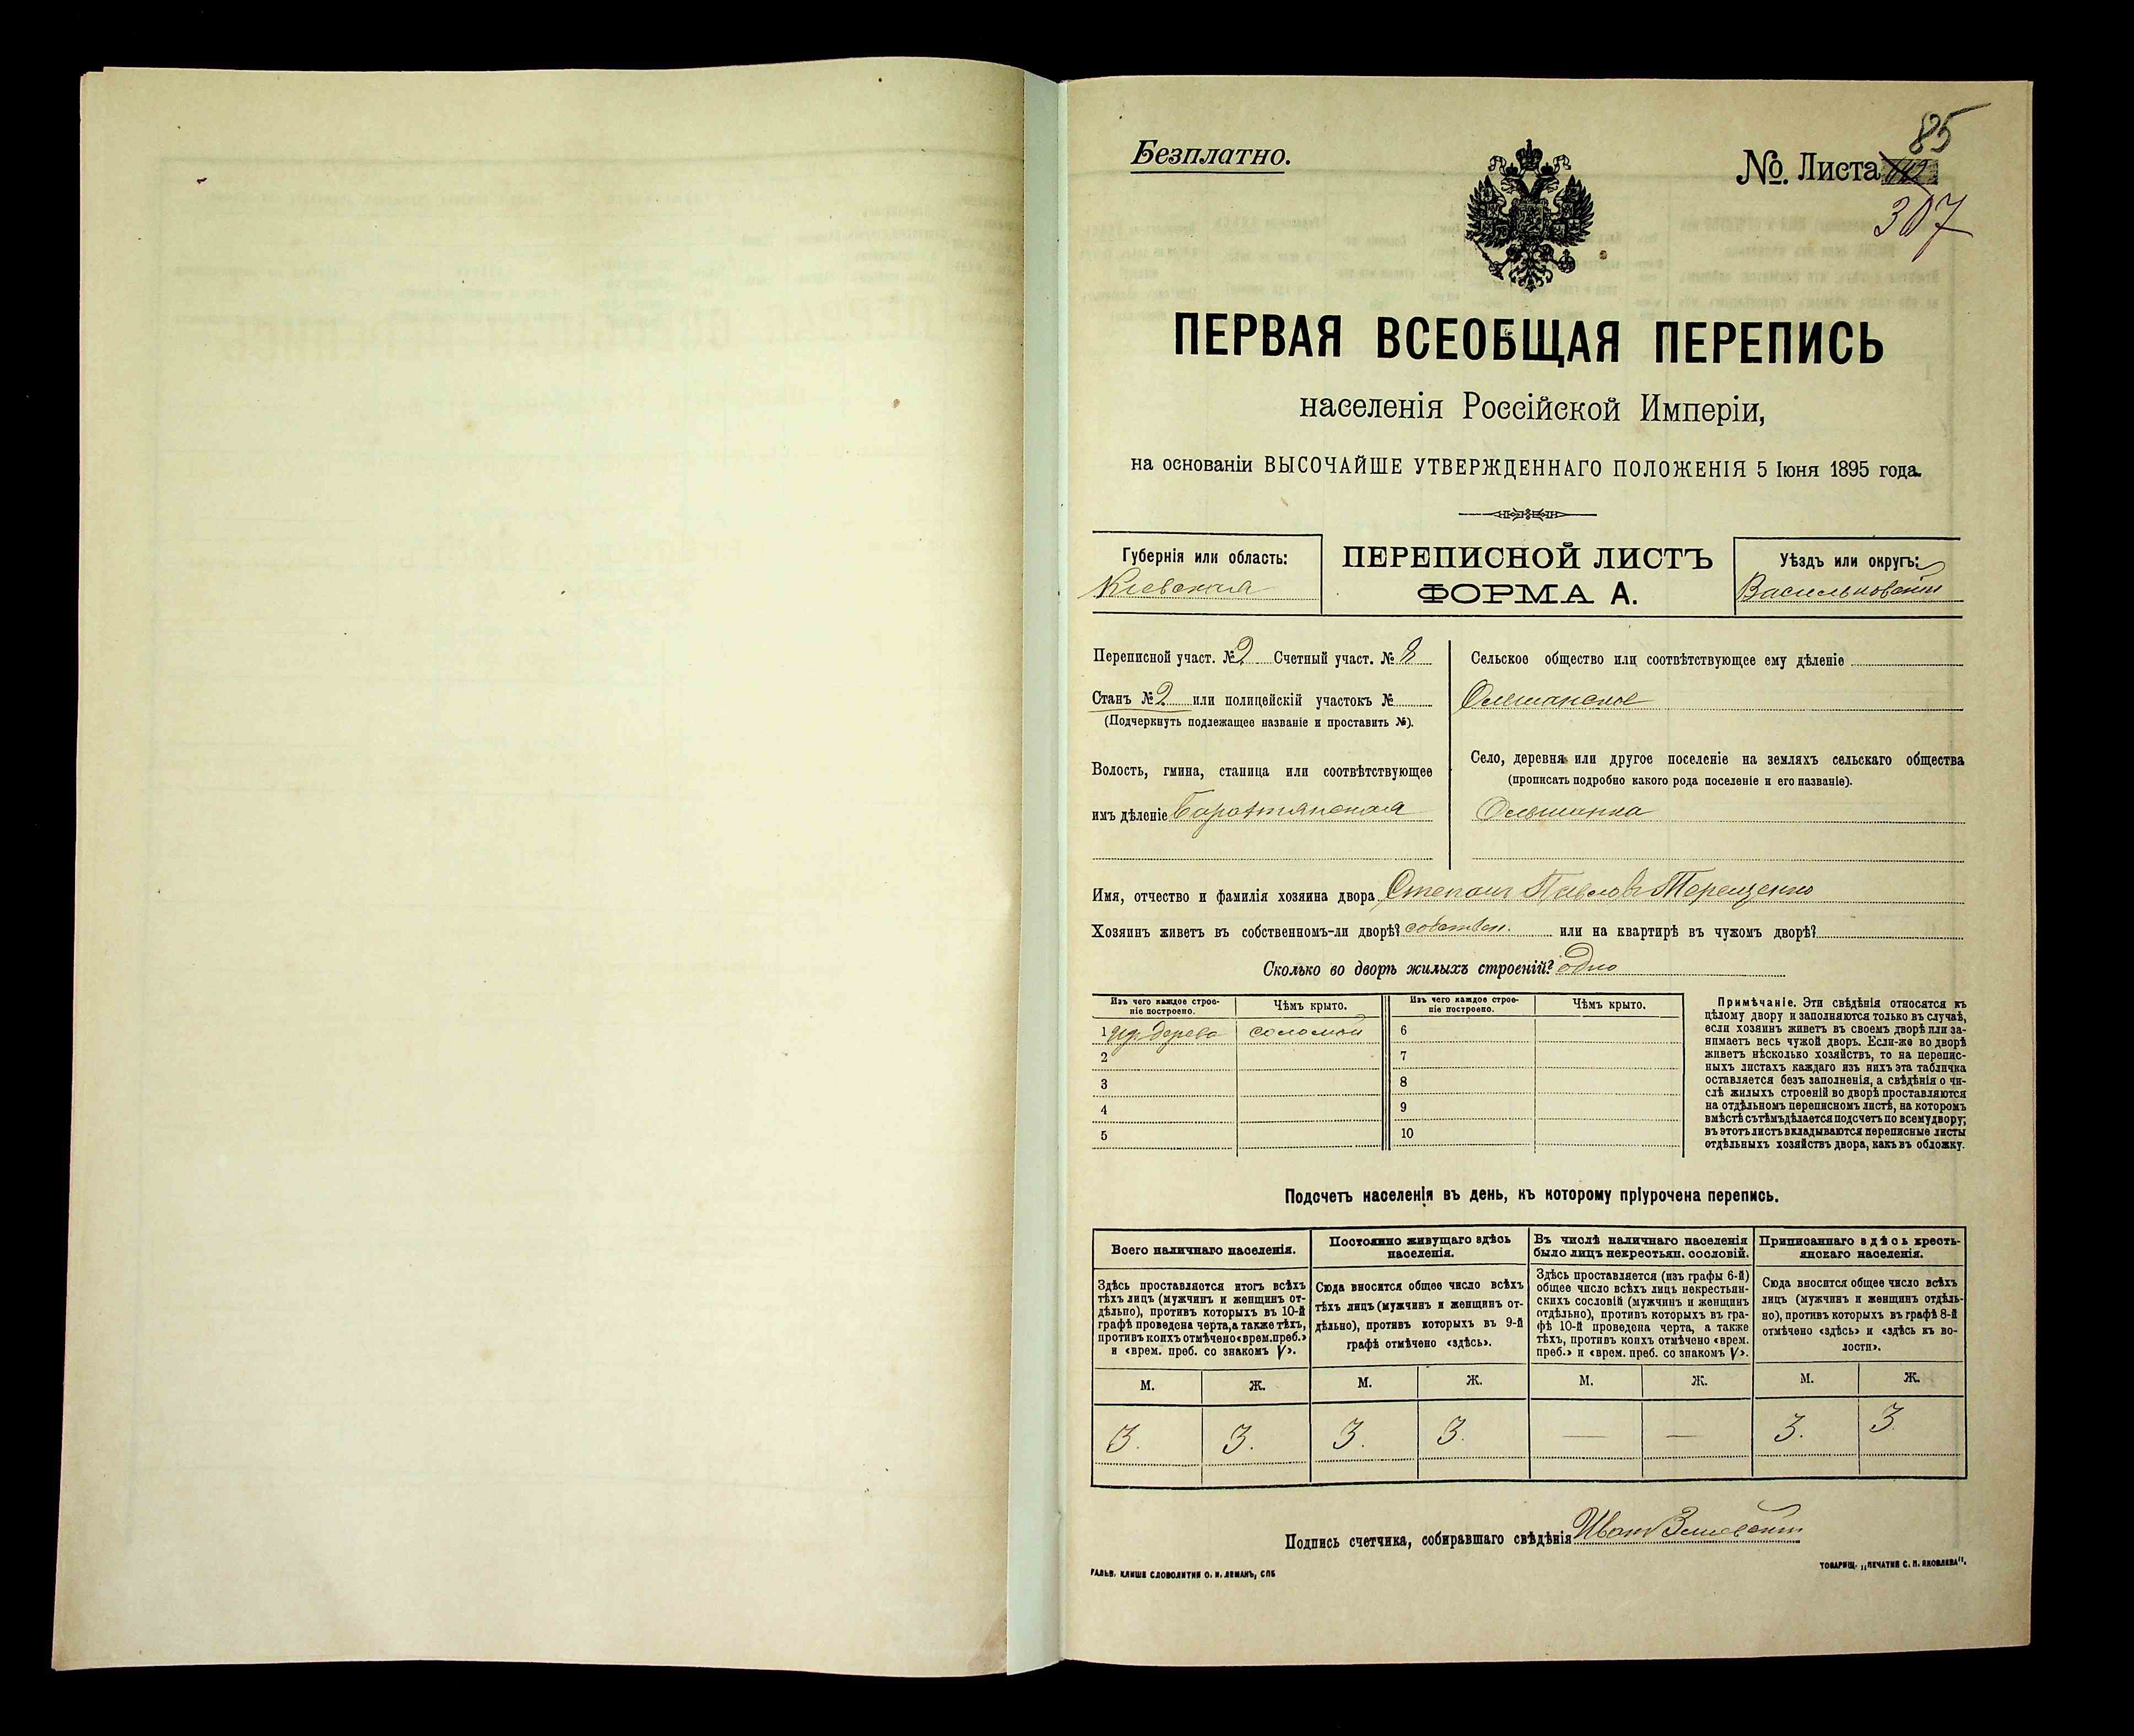 Безплатно.
№ Листа
85
307
ПЕРВАЯ ВСЕОБЩАЯ ПЕРЕПИСЬ
населенія Россійской Имперіи,
на основаніи ВЫСОЧАЙШЕ УТВЕРЖДЕННАГО ПОЛОЖЕНІЯ 5 Іюня 1895 года.
Губернія или область:
Кіевская
ПЕРЕПИСНОЙ ЛИСТЪ
ФОРМА А.
Уѣздъ или округъ:
Васильковскій
Переписной участ. № 2 Счетный участ. № 8
Станъ № 2 или полицейскій участокъ №
(Подчеркнуть подлежащее названіе и проставить №).
Волость, гмина, станица или соотвѣтствующее
имъ дѣленіе Барахтянская
Сельское общество или соотвѣтствующее ему дѣленіе
Ольшанское
Село, деревня или другое поселеніе на земляхъ сельскаго общества
(прописать подробно какого рода поселеніе и его названіе).
Ольшанка
Имя, отчество и фамилія хозяина двора Степанъ Павловъ Терещенко
Хозяинъ живетъ въ собственномъ-ли дворѣ? собствен. или на квартирѣ въ чужомъ дворѣ?
Сколько во дворѣ жилыхъ строеній? одно
Изъ чего каждое строе-
ніе построено.
Чѣмъ крыто.
Изъ чего каждое строе-
ніе построено.
Чѣмъ крыто.
1 изъ дерева соломой
2
3
4
5
6
7
8
9
10
Примѣчаніе. Эти свѣдѣнія относятся къ
цѣлому двору и заполняются только въ случаѣ,
если хозяинъ живетъ въ своемъ дворѣ или за-
нимаетъ весь чужой дворъ. Если-же во дворѣ
живетъ нѣсколько хозяйствъ, то на перепис-
ныхъ листахъ каждаго изъ нихъ эта табличка
оставляется безъ заполненія, а свѣдѣнія о чи-
слѣ жилыхъ строеній во дворѣ проставляются
на отдѣльномъ переписномъ листѣ, на которомъ
вмѣстѣ съ тѣмъ дѣлается подсчетъ по всему двору;
въ этотъ листъ вкладываются переписные листы
отдѣльныхъ хозяйствъ двора, какъ въ обложку.
Подсчетъ населенія въ день, къ которому пріурочена перепись.
Всего наличнаго населенія.
Здѣсь проставляется итогъ всѣхъ
тѣхъ лицъ (мужчинъ и женщинъ от-
дѣльно), противъ которыхъ въ 10-й
графѣ проведена черта, а также тѣхъ,
противъ коихъ отмѣчено «врем. преб.»
и «врем. преб. со знакомъ V».
Постоянно живущаго здѣсь
населенія.
Сюда вносится общее число всѣхъ
тѣхъ лицъ (мужчинъ и женщинъ от-
дѣльно), противъ которыхъ въ 9-й
графѣ отмѣчено «здѣсь».
Въ числѣ наличнаго населенія
было лицъ некрестьян. сословій.
Здѣсь проставляется (изъ графы 6-й)
общее число всѣхъ лицъ некрестьян-
скихъ сословій (мужчинъ и женщинъ
отдѣльно), противъ которыхъ въ гра-
фѣ 10-й проведена черта, а также
тѣхъ, противъ коихъ отмѣчено «врем.
преб.» и «врем. преб. со знакомъ V».
Приписаннаго здѣсь кресть-
янскаго населенія.
Сюда вносится общее число всѣхъ
лицъ (мужчинъ и женщинъ отдѣль-
но), противъ которыхъ въ графѣ 8-й
отмѣчено «здѣсь» и «здѣсь къ во-
лости».
М. Ж. М. Ж. М. Ж. М. Ж.
3. 3. 3. 3. — — 3. 3
Подпись счетчика, собиравшаго свѣдѣнія Иванъ
ГАЛЬВ. КЛИШЕ СЛОВОЛИТНИ О. И. ЛЕМАНЪ, СПБ
ТОВАРИЩ. „ПЕЧАТНЯ С. П. ЯКОВЛЕВА".